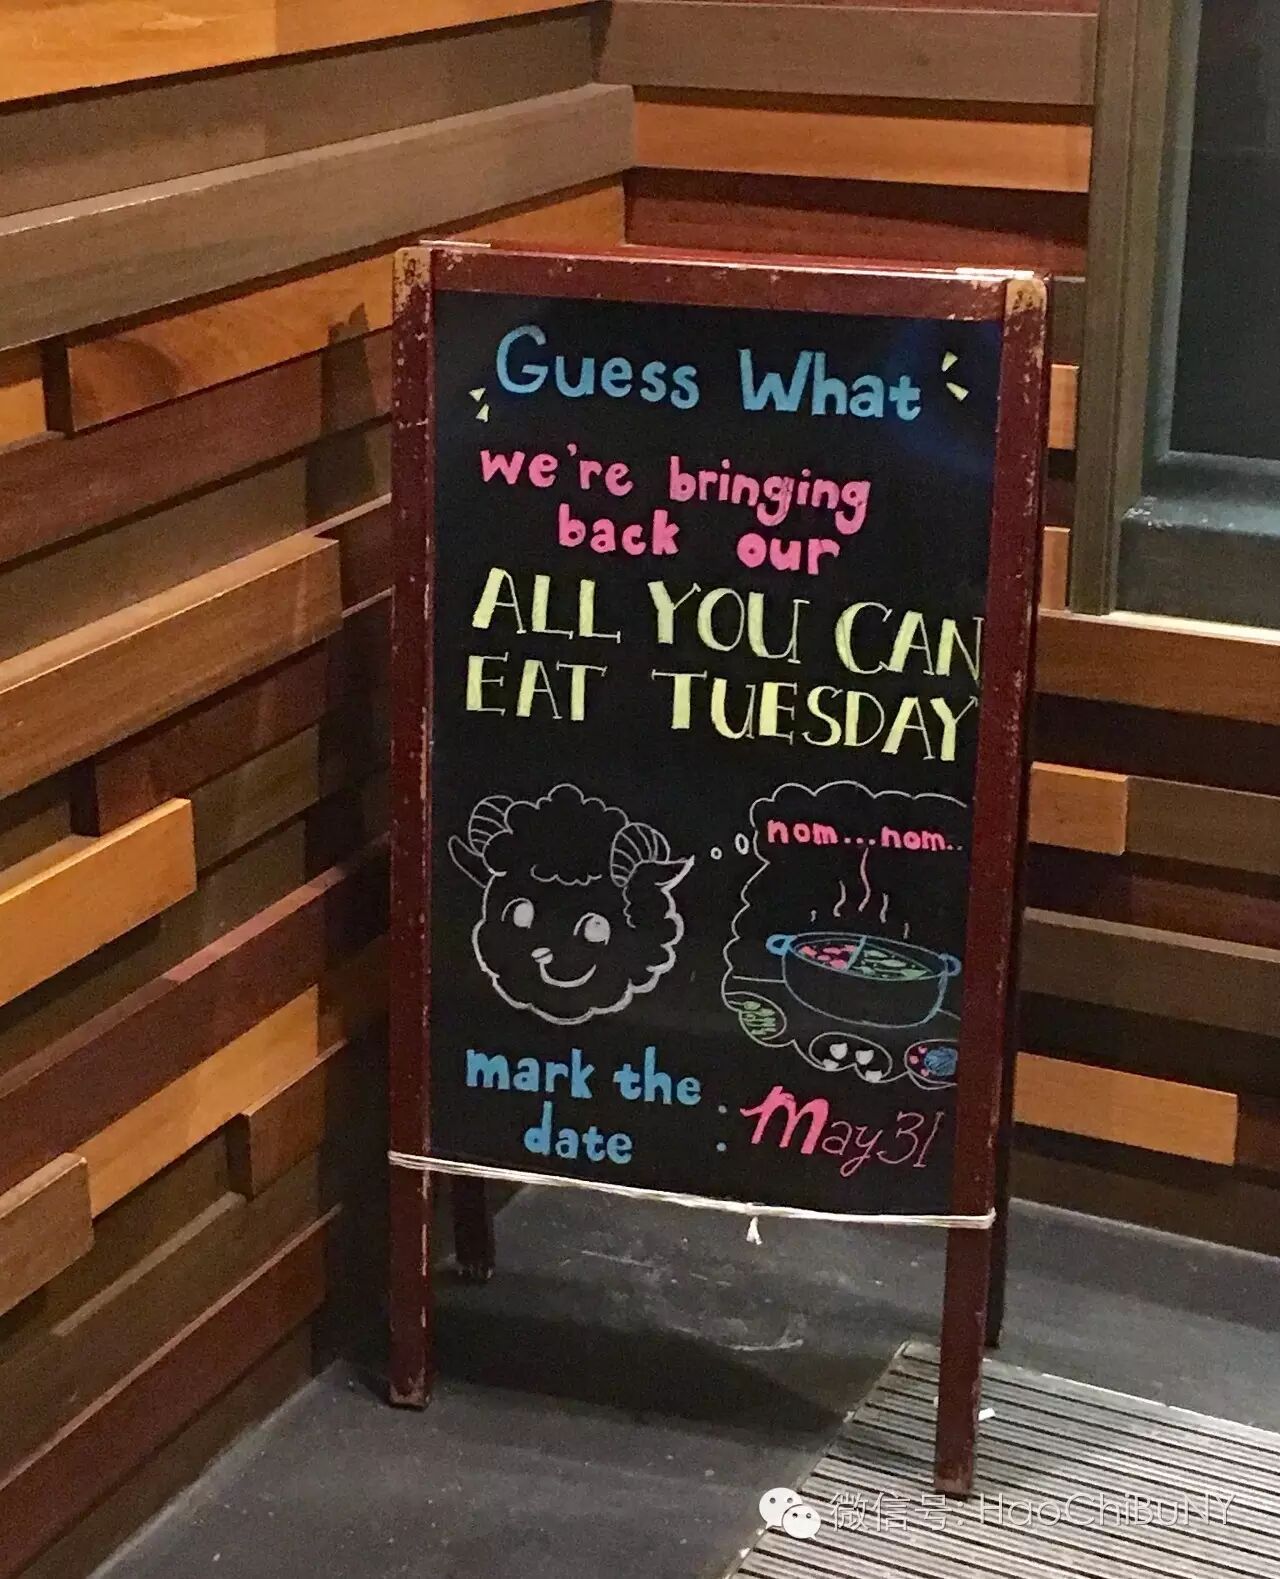 Guess What
we're bringing
back our
ALL YOU CAN
EAT TUESDAY
nom...nom..
mark the
date : May 31
微信号: HaoChiBuNY